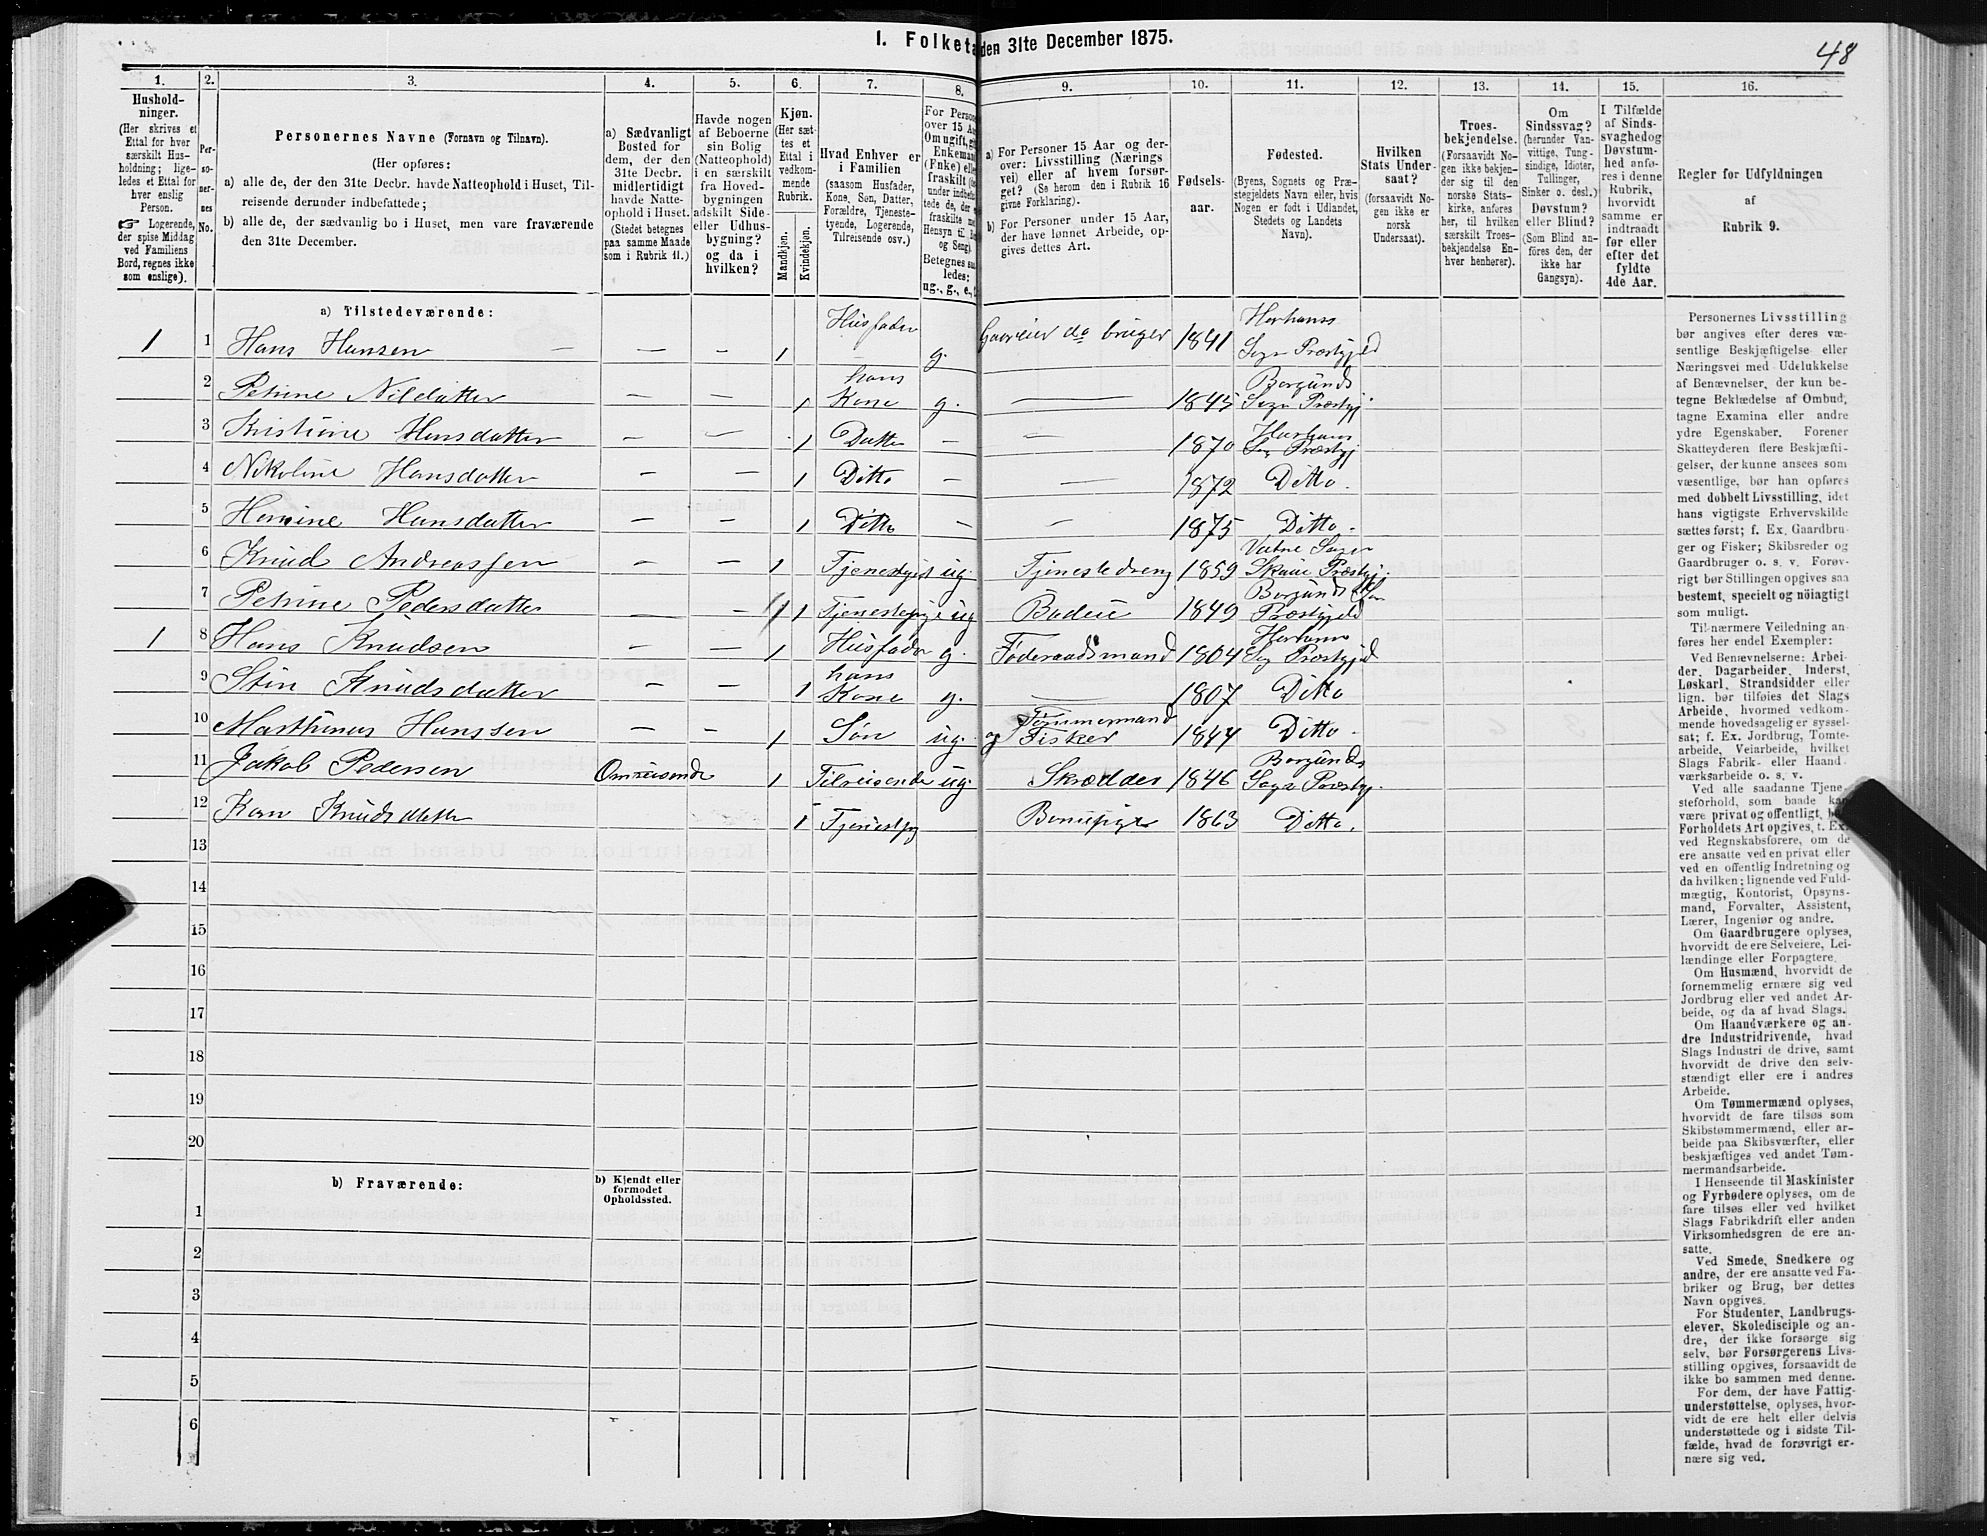 I. Folketæ
den 31te December 1875.
48
1.
2.
3.
4.
5.
6.
7.
8.
9.
10.
11.
12.
13.
14.
15.
16.
Hushold-
ninger.
(Her skrives et
Ettal for hver
særskilt Hus-
holdning; lige-
ledes et Ettal for
hver enslig
Person.
☞ Logerende,
der spise Middag
ved Familiens
Bord, regnes ikke
som enslige).
Per-
so-
ner-
nes
No.
Personernes Navne (Fornavn og Tilnavn).
(Her opføres:
a) alle de, der den 31te Decbr. havde Natteophold i Huset, Til-
reisende derunder indbefattede;
b) alle de, der sædvanlig bo i Huset, men vare fraværende
den 31te December.
a) Sædvanligt
Bosted for
dem, der den
31te Decbr.
midlertidigt
havde Natte-
ophold i Huset.
(Stedet betegnes
paa samme Maade
som i Rubrik 11.)
Havde nogen
af Beboerne
sin Bolig
(Natteophold)
i en særskilt
fra Hoved-
bygningen
adskilt Side-
eller Udhus-
bygning?
og da i
hvilken?
Kjøn.
(Her sæt-
tes et
Ettal i
vedkom-
mende
Rubrik.
Mandkjøn.
Kvindekjøn.
Hvad Enhver er
i Familien
(saasom Husfader,
Kone, Søn, Datter,
Forældre, Tjeneste-
tyende, Logerende,
Tilreisende osv.)
For Person
over 15 Aa
Om ugift, gi
Enkeman
(Fnke) elle
fraskilt (de
under indbefat-
tede de, der e
fraskilte me
Hensyn til B
og Seng).
Betegnes saa
ledes:
ug., g., e., f
a) For Personer 15 Aar og der-
over: Livsstilling (Nærings
vei) eller af hvem forsør-
get? (Se herom den i Rubrik 16
givne Forklaring).
b) For Personer under 15 Aar,
der have lønnet Arbeide, op-
gives dettes Art.
Fødsels-
aar.
Fødested.
(Byens, Sognets og Præ-
stegjeldets Navn eller, hvis
Nogen er født i Udlandet,
Stedets og Landets
Navn).
Hvilken
Stats Under-
saat?
(forsaavidt No-
gen ikke er
norsk
Undersaat).
Troes-
bekjendelse.
(Forsaavidt No-
gen ikke bekjen-
der sig til den
norske Stats-
kirke, anføres
her, til hvilken
særskilt Troes-
bekjendelse En-
hver henhører).
Om
Sindssvag?
(herunder Van-
vittige, Tung-
sindige, Idioter,
Tullinger,
Sinker o. desl.)
Døvstum?
eller Blind?
(Som Blind an-
føres den, der
ikke har
Gangsyn).
I Tilfælde
af Sinds-
svaghed og
Døvstum-
hed anfø-
res i denne
Rubrik,
hvorvidt
samme er
indtraadt
før eller
efter det
fyldte
4de Aar.
Regler for Udfyldningen
af
Rubrik 9.
a) Tilstedeværende:
1 1 Hans Hansen — — 1 Husfader g. Gaardeier da bruger 1841 Harhams Sogn Præstgjeld
2 Petrine Nilsdatter — — 1 hans Kone g. — 1845 Borgunds Sogn Præstgj.
3 Kristine Hansdatter — — 1 Datter — — 1870 Harhams Sog Præstgj
4 Nikoline Hansdatter — — 1 Ditto — — 1872 Ditto.
5 Hansine Hansdatter — — 1 Ditto — — 1875 Ditto.
6 Knud Andreassen — — 1 ug. Tjenestedreng 1859 Vatne Sogn Præstgj.
7 Petrine Pedersdatter — — 1 Tjenestepige ug Budeie 1849 Borgunds Sogn Præstgjeld
1 8 Hans Knudsen — — 1 Husfader g. Føderaadsmand 1804 Harhams Sog Præstgjeld
9 Stin Knudsdatter — — 1 hans Kone g. — 1807 Ditto
10 Marthinus Hanssen — — 1 Søn ug. Tømmermand og Fisker 1844 Ditto.
11 Jakob Pedersen Omreisende 1 Tilreisende ug. Skrædder 1846 Borgunds Sogn Præstgj.
12 Karn Knudsdatter 1 Tjenestpg Barnepige 1863 Ditto.
13
14
15
16
17
18
19
20
b) Fraværende:
b) Kjendt eller
formodet
Opholdssted.
1
2
3
4
5
6
Personernes Livsstilling
bør angives efter deres væ-
sentlige Beskjæftigelse eller
Næringsvei med Udelukkelse
af Benævnelser, der kun be-
tegne Beklædelse af Ombud,
tagne Examina eller andre
ydre Egenskaber. Forener
Skatteyderen flere Beskjæfti-
gelser, der kunne ansees som
væsentlige, bør han opføres
med dobbelt Livsstilling, idet
hans vigtigste Erhvervskilde
sættes først; f. Ex. Gaardbru-
ger og Fisker; Skibsreder og
Gaardbruger o. s. v. Forøv-
rigt bør Stillingen opgives saa
bestemt, specielt og nøiagtigt
som muligt.
Til nærmere Veiledning an-
føres her endel Exempler:
Ved Benævnelserne: Arbei-
der, Dagarbeider, Inderst,
Løskarl, Strandsidder eller
lign. bør tilføies det Slags
Arbeide, hvormed vedkom-
mende hovedsagelig er syssel-
sat; f. Ex. Jordbrug, Tomte-
arbeide, Veiarbeide, hvilket
Slags Fabrik- eller Haand-
værksarbeide o. s. v.
Ved alle saadanne Tjene-
steforhold, som baade kan
være privat og offentligt, bør
Forholdets Art opgives, t. Ex.
ved Regnskabsførere, om de
ere ansatte ved en privat eller
ved en offentlig Indretning og
da hvilken; lignende ved Fuld-
mægtig, Kontorist, Opsyns-
mand, Forvalter, Assistent,
Lærer, Ingeniør og andre.
Om Gaardbrugere oplyses,
hvorvidt de ere Selveiere, Lei-
lændinge eller Forpagtere.
Om Husmænd, hvorvidt de
fornemmelig ernære sig ved
Jordbrug eller ved andet Ar-
beide, og da af hvad Slags.
Om Haandværkere og an-
dre Industridrivende, hvad
Slags Industri de drive, samt
hvorvidt de drive den selv-
stændigt eller ere i andres
Arbeide.
Om Tømmermænd oplyses,
hvorvidt de fare tilsøs som
Skibstømmermænd, eller ar-
beide paa Skibsværfter, eller
beskjæftiges ved andet Tøm-
mermandsarbeide.
I Henseende til Maskinister
og Fyrbødere oplyses, om de
fare tilsøs eller ved hvilket
Slags Fabrikdrift eller anden
Virksomhedsgren de ere an-
satte.
Ved Smede, Snedkere og
andre, der ere ansatte ved Fa-
briker og Brug, bør dettes
Navn opgives.
For Studenter, Landbrugs-
elever, Skoledisciple og an-
dre, der ikke forsørge sig
selv, bør Forsørgerens Livs-
stilling opgives, forsaavidt de
ikke bo sammen med denne.
For dem, der have Fattig-
understøttelse, oplyses, hvor-
vidt de ere helt eller delvis
understøttede og i sidste Til-
fælde, hvad de forøvrigt er-
nære sig ved.